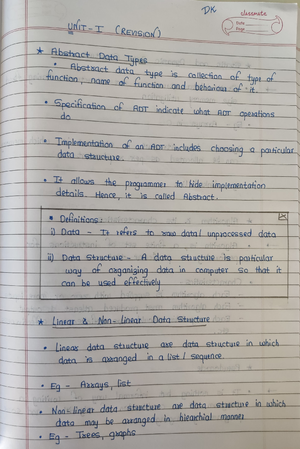 DK
classmate
Date
Page
UNIT-I (REVISION)
★ Abstract Data Types
• Abstract data type is collection of type of
function, name of function and behaviour of it.
• Specification of ADT indicate what ADT operations
do
• Implementation of an ADT includes choosing a particular
data structure.
• It allows the programmer to hide implementation
details. Hence, it is called Abstract.
• Definitions:
i) Data - It refers to raw data/ unprocessed data
ii) Data Structure - A data structure is particular
way of organizing data in computer so that it
can be used effectively
★ Linear & Non-Linear Data Structure
• Linear data structure are data structure in which
data is arranged in a list / sequence.
• Eg - Arrays, list
• Non-linear data structure are data structure in which
data may be arranged in hierarchial manner
• Eg - Trees, graphs